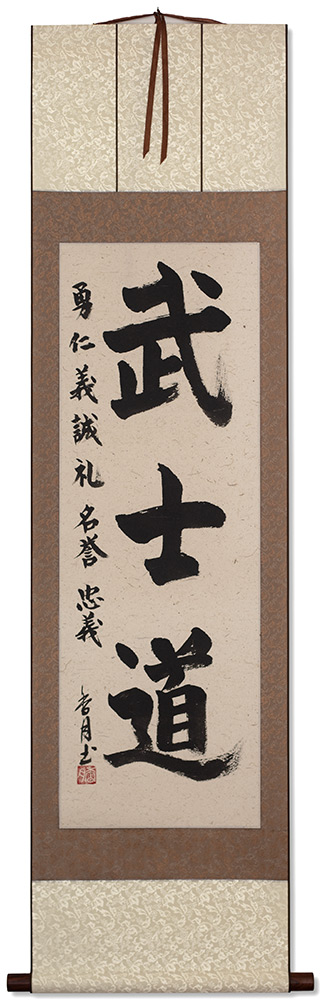 武士道
勇仁義誠礼名誉忠義
香月书